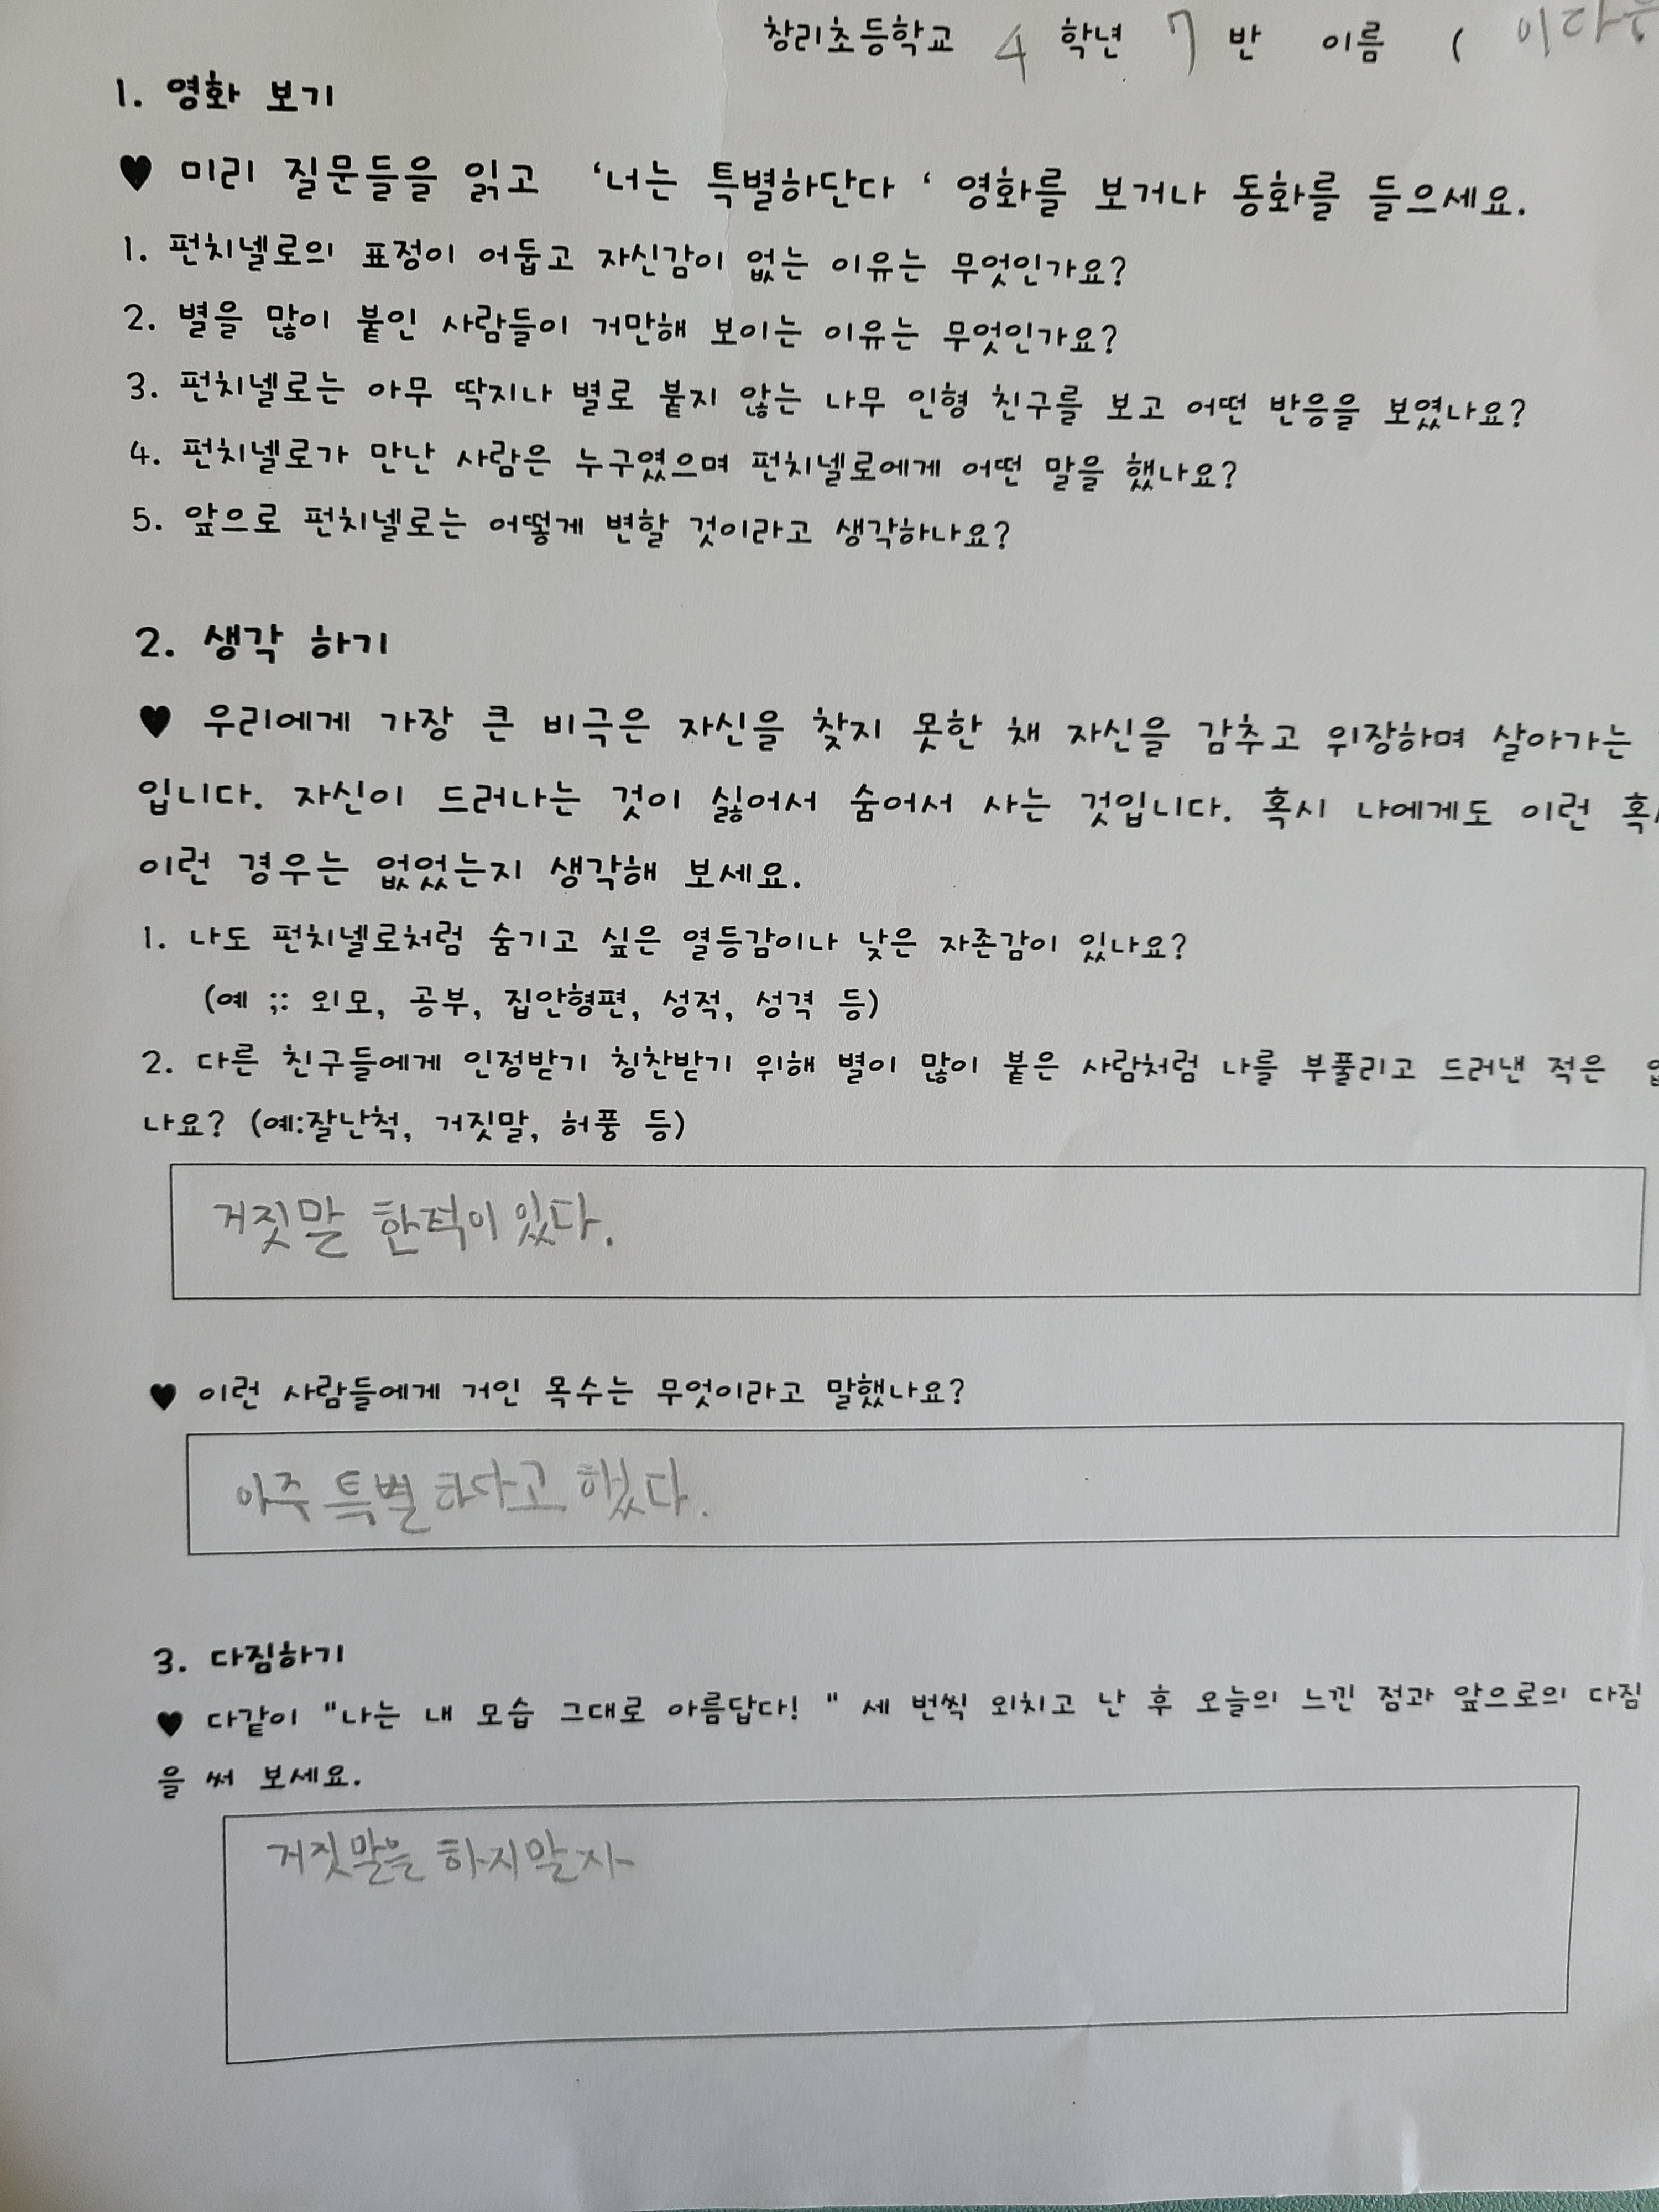 창리초등학교 4 학년 7 반 이름 ( 이다은
1. 영화 보기
♥ 미리 질문들을 읽고 ‘너는 특별하단다 ‘ 영화를 보거나 동화를 들으세요.
1. 펀치넬로의 표정이 어둡고 자신감이 없는 이유는 무엇인가요?
2. 별을 많이 붙인 사람들이 거만해 보이는 이유는 무엇인가요?
3. 펀치넬로는 아무 딱지나 별로 붙지 않는 나무 인형 친구를 보고 어떤 반응을 보였나요?
4. 펀치넬로가 만난 사람은 누구였으며 펀치넬로에게 어떤 말을 했나요?
5. 앞으로 펀치넬로는 어떻게 변할 것이라고 생각하나요?
2. 생각 하기
♥ 우리에게 가장 큰 비극은 자신을 찾지 못한 채 자신을 감추고 위장하며 살아가는
입니다. 자신이 드러나는 것이 싫어서 숨어서 사는 것입니다. 혹시 나에게도 이런 혹
이런 경우는 없었는지 생각해 보세요.
1. 나도 펀치넬로처럼 숨기고 싶은 열등감이나 낮은 자존감이 있나요?
(예 ;: 외모, 공부, 집안형편, 성적, 성격 등)
2. 다른 친구들에게 인정받기 칭찬받기 위해 별이 많이 붙은 사람처럼 나를 부풀리고 드러낸 적은
나요? (예:잘난척, 거짓말, 허풍 등)
거짓말 한적이 있다.
♥ 이런 사람들에게 거인 목수는 무엇이라고 말했나요?
아주 특별하다고 했다.
3. 다짐하기
♥ 다같이 "나는 내 모습 그대로 아름답다! " 세 번씩 외치고 난 후 오늘의 느낀 점과 앞으로의 다짐
을 써 보세요.
거짓말을 하지말자